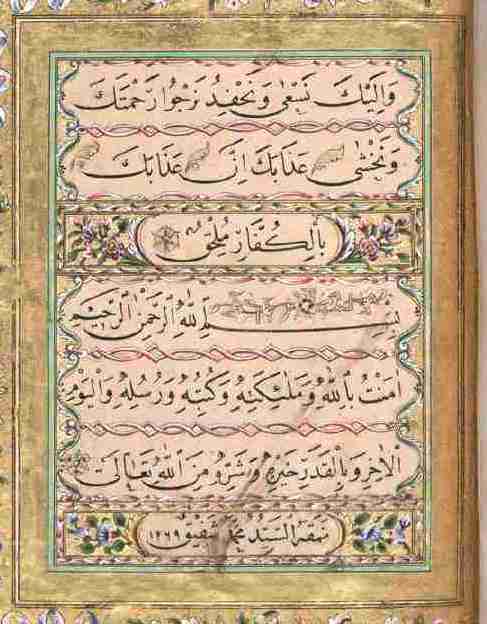 وَاِلَيْكَ نَسْعٰى وَنَحْفِدُ نَرْجُوا رَحْمَتَكَ
وَنَخْشٰى عَذَابَكَ اِنَّ عَذَابَكَ
بِالْكُفَّارِ مُلْحِقٌ
بسم اللّٰهِ الرَّحْمٰنِ الرَّحِيمِ
اٰمَنْتُ بِاللّٰهِ وَمَلٰئِكَتِهِ وَكُتُبِهِ وَرُسُلِهِ وَالْيَوْمِ
الْاٰخِرِ وَبِالْقَدَرِ خَيْرِهِ وَشَرِّهِ مِنَ اللّٰهِ تَعَالٰى
نمقه السيد محمد شفيق ١٢٦٩